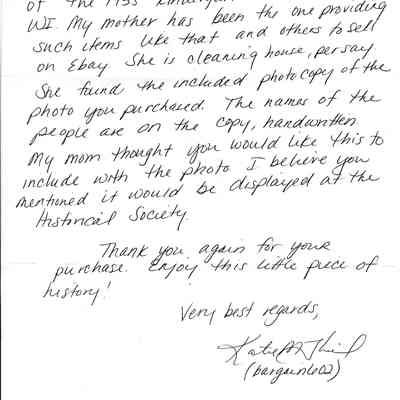 of the 1955 Kindergar
WI. My mother has been the one providing
such items like that and others to sell
on Ebay She is cleaning house, per say
She found the included photocopy of the
photo you purchased. The names of the
people are on the copy, handwritten
My mom thought you would like this to
include with the photo I believe you
mentioned it would be displayed at the
Historical Society
Thank you again for your
purchase. Enjoy this little piece of
history!
Very best regards,